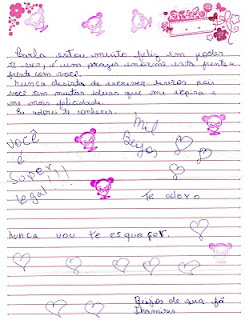 Paula estou muito feliz em poder
te ver, é um prazer enorme está frente a
frente com você.
Nunca desista de escrever livros pois
você tem muitas ideias que me inspira e
me mais felicidade.
Eu adorei te conhecer.
Mil
Beijos
VOCÊ
é
Super
legal!!!
Te adoro
Nunca vou te esqueçer.
Beijos de sua fã
Thamires